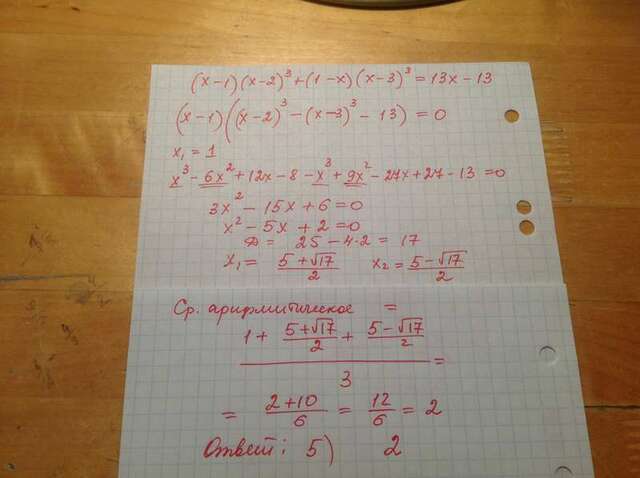 (x-1)(x-2)³+(1-x)(x-3)³=13x-13
(x-1)((x-2)³-(x-3)³-13)=0
x₁=1
x³-6x²+12x-8-x³+9x²-27x+27-13=0
3x²-15x+6=0
x²-5x+2=0
D= 25-4·2=17
x₁= (5+√17)/2 x₂=(5-√17)/2
Ср. арифмитическое =
(1+ (5+√17)/2 + (5-√17)/2)/3 =
= (2+10)/6 = 12/6 = 2
Ответ: 5) 2